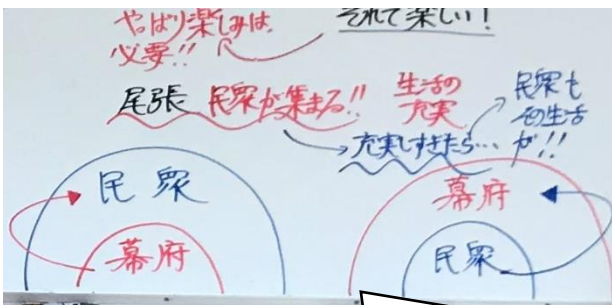 やっぱり楽しみは、
必要!!
それで楽しい!
尾張 民衆が集まる!!
生活の
充実
充実しすぎたら…
民衆も
その生活
が!!
民衆
幕府
幕府
民衆